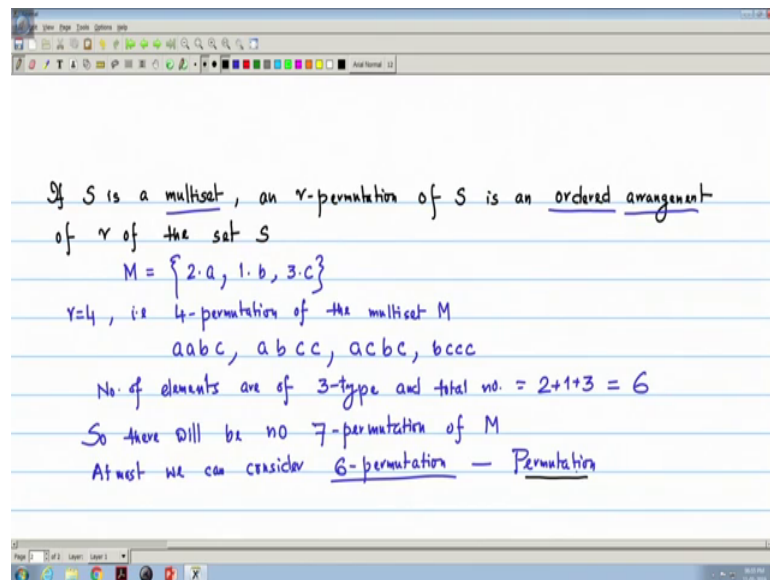 View Page Tools Options Help
Arial Normal 12
If S is a multiset, an r-permutation of S is an ordered arrangement
of r of the set S
M = {2.a, 1.b, 3.c}
r=4, i.e 4-permutation of the multiset M
aabc, abcc, acbc, bccc
No. of elements are of 3-type and total no. = 2+1+3 = 6
So there will be no 7-permutation of M
Atmost we can consider 6-permutation — Permutation
Page 2 of 2 Layer: Layer 1